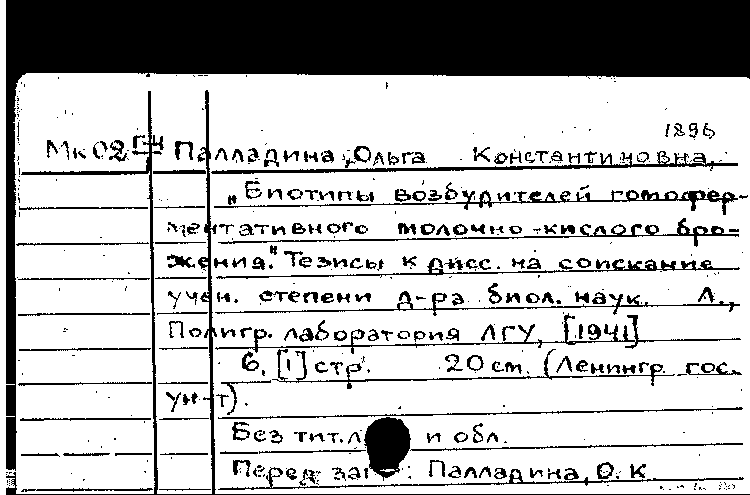 1896
Мк02 Палладина, Ольга Константиновна,
„Биотипы возбудителей гомофер-
ментативного молочно-кислого бро-
жения." Тезисы к дисс. на соискание
учен. степени д-ра биол. наук. Л.,
Полигр. лаборатория ЛГУ, [1941]
6, [1] стр. 20 см. (Ленингр. гос.
ун-т).
Без тит. л и обл.
Перед заг : Палладина, О. К